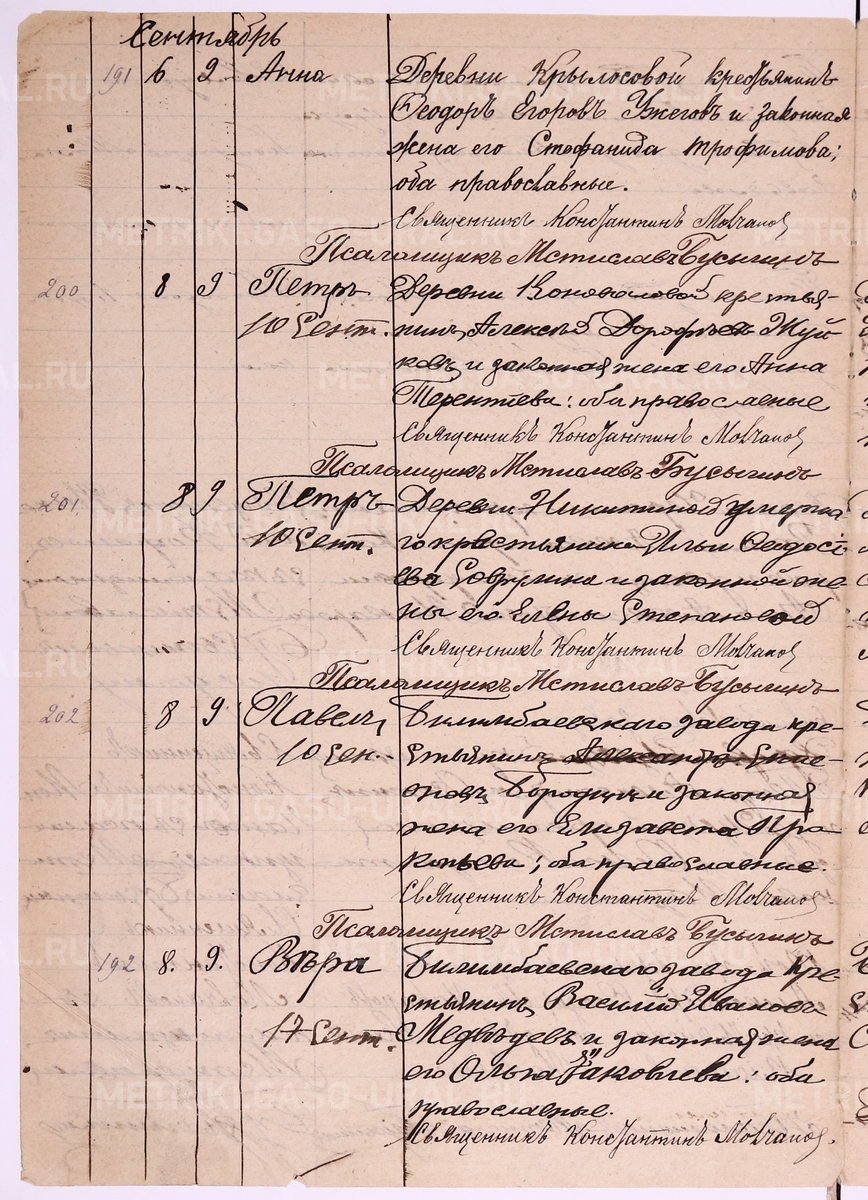 Сентябрь
191 6 9 Анна Деревни Крылосовой крестьянинъ
Ѳеодоръ Егоровъ Ужеговъ и законная
жена его Стефанида Трофимова;
оба православные.
Священникъ Константинъ Мовчановъ
Псаломщикъ Мстиславъ Бусыгинъ
200 8 9 Петръ Деревни Коноваловой крестья-
10 Сент. нинъ Алексѣй Дорофѣевъ Жуй-
ковъ и законная жена его Анна
Терентiева: оба православные
Священникъ Константинъ Мовчановъ
Псаломщикъ Мстиславъ Бусыгинъ
201 8 9 Петръ Деревни Никитиной умерша
10 Сент. го крестьянина Ильи Ѳеодосi
ева и законной же
ны его Елены Степановой
Священникъ Константинъ Мовчановъ
Псаломщикъ Мстиславъ Бусыгинъ
202 8 9 Павелъ Билимбаевскаго завода кре-
10 Сен. стьянинъ Александръ Симе-
оновъ Бородинъ и законная
жена его Елизавета Про
копьева; оба православные.
Священникъ Константинъ Мовчановъ
Псаломщикъ Мстиславъ Бусыгинъ
192 8. 9. Вѣра Билимбаевскаго завода кре-
стьянинъ Василiй Ивановъ
17 Сент. Медвѣдевъ и законная жена
его Ольга Яковлева: оба
православные.
Священникъ Константинъ Мовчановъ.